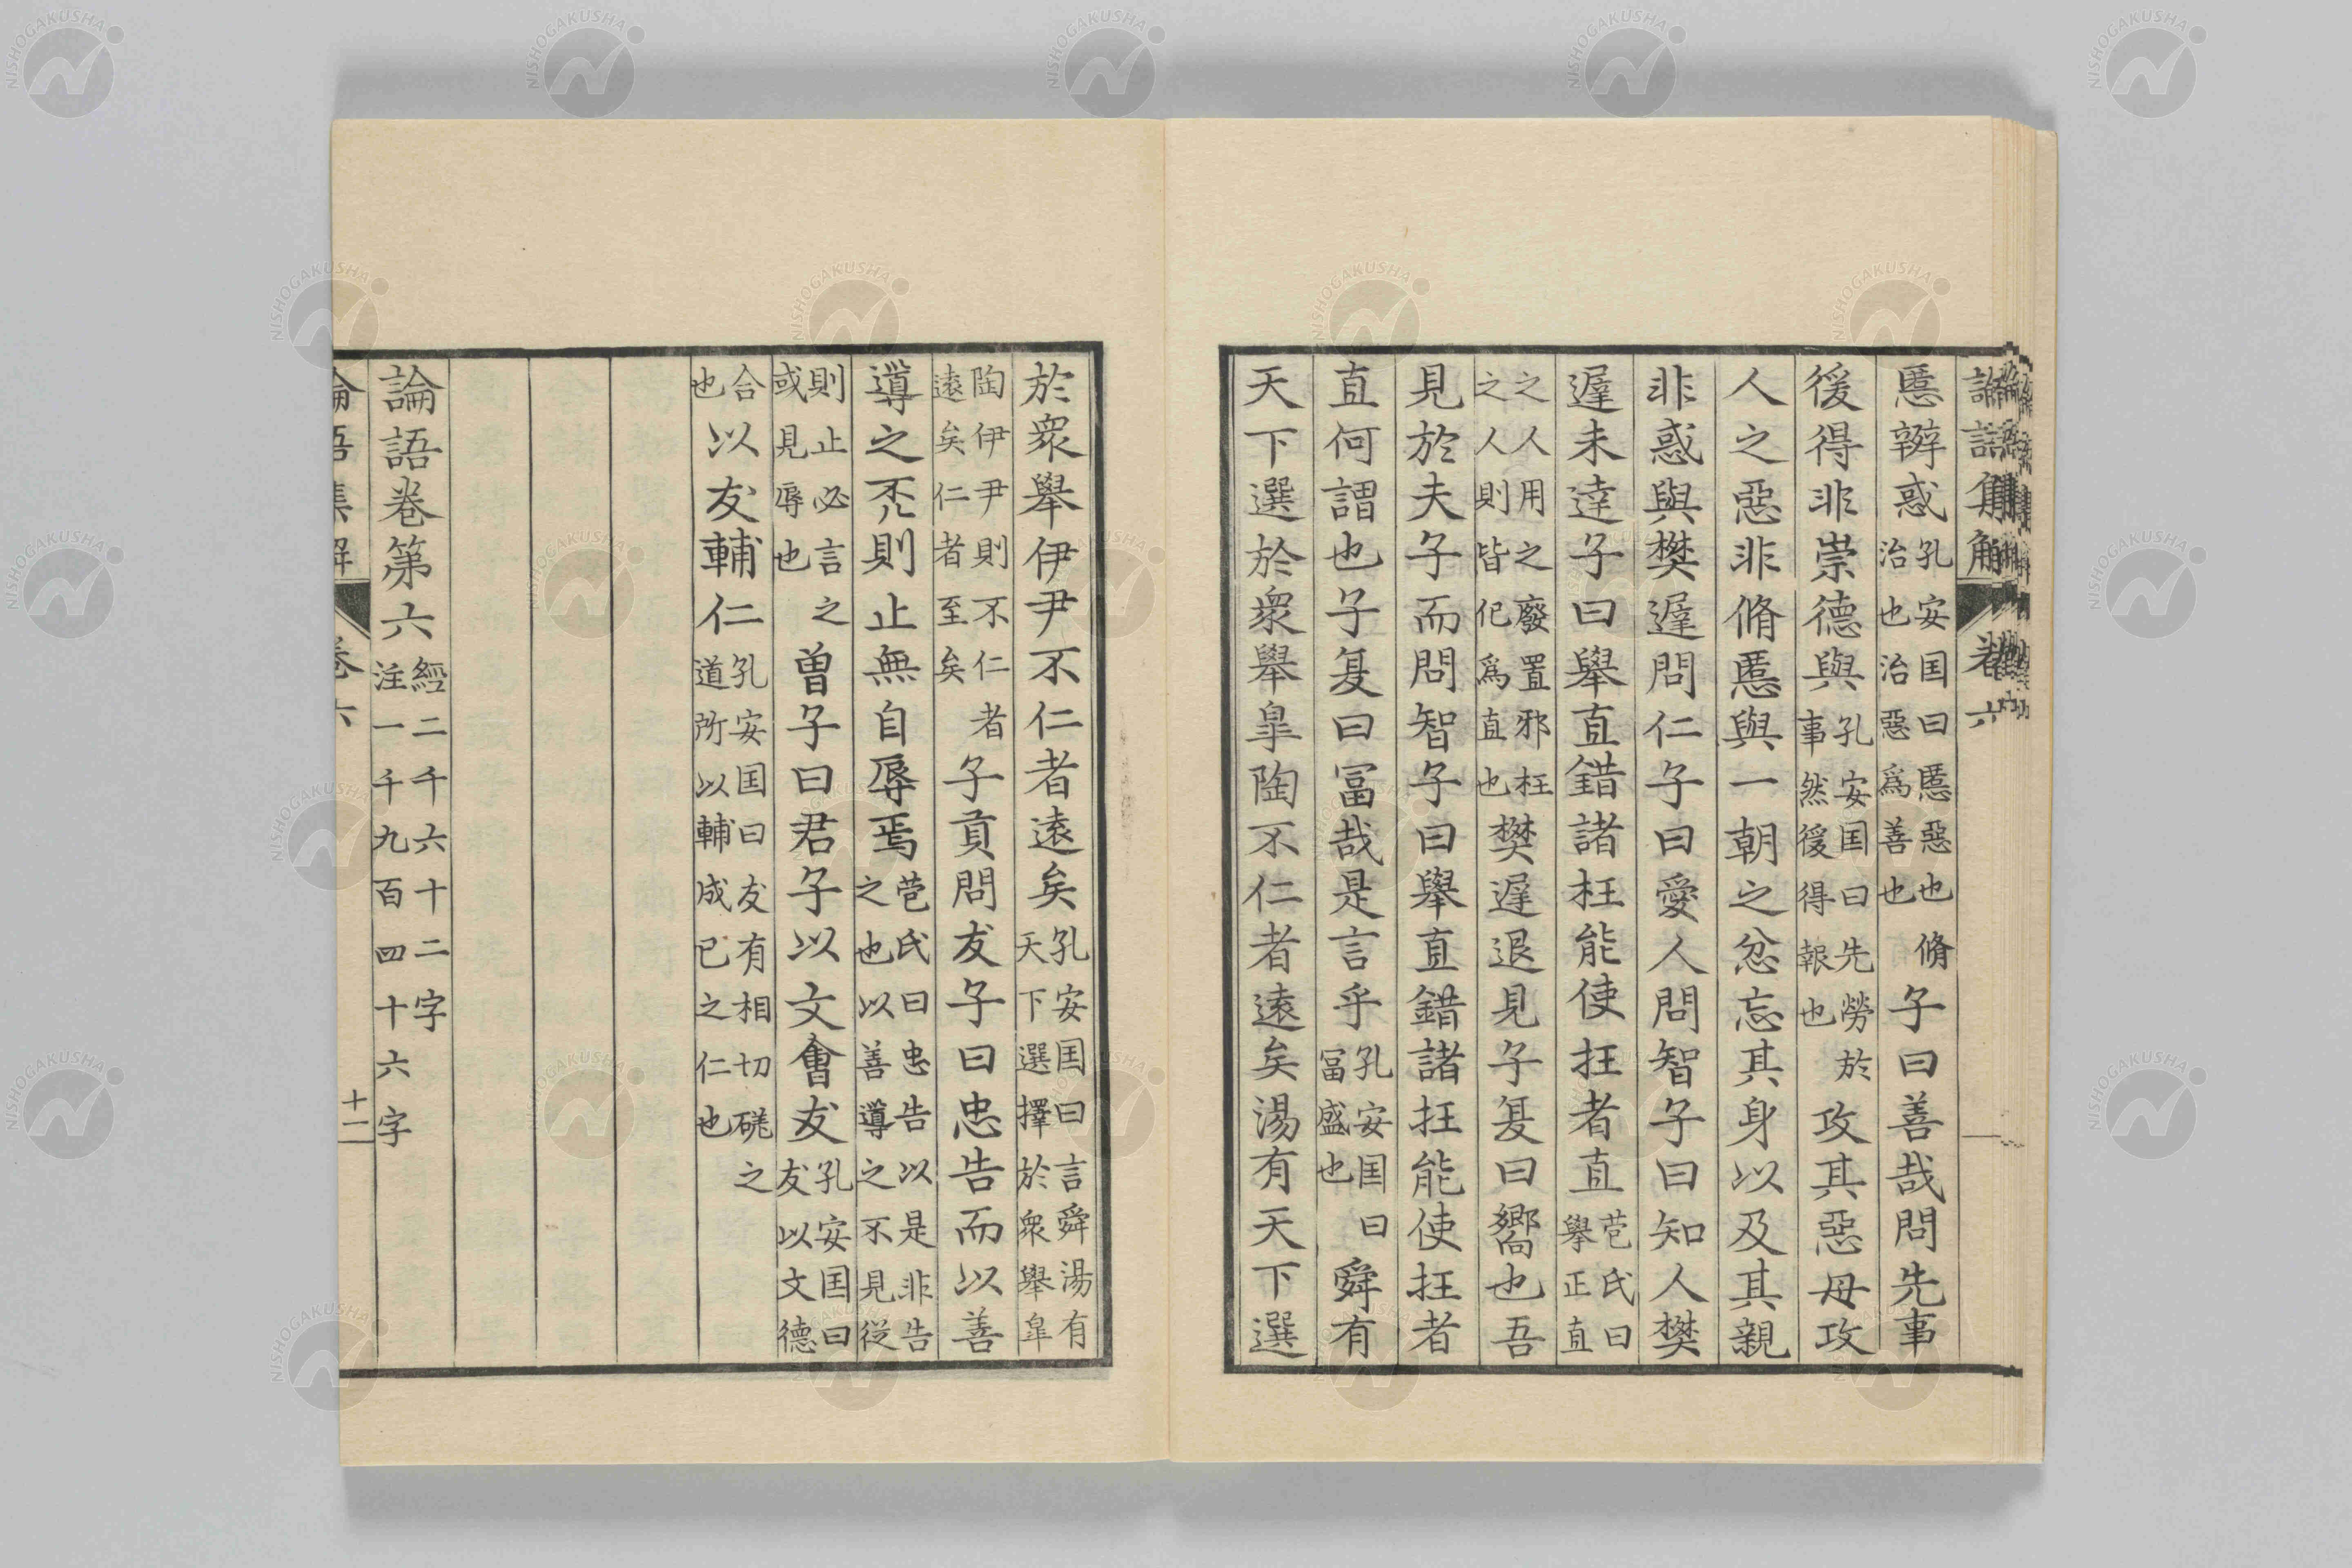 慝辨惑孔安国曰慝惡也脩治也治惡爲善也子曰善哉問先事
後得非崇德與孔安国曰先勞於事然後得報也攻其惡毋攻
人之惡非脩慝與一朝之忿忘其身以及其親
非惑與樊遲問仁子曰愛人問智子曰知人樊
遲未達子曰舉直錯諸枉能使枉者直苞氏曰舉正直
之人用之廢置邪枉之人則皆化爲直也樊遲退見子夏曰嚮也吾
見於夫子而問智子曰舉直錯諸枉能使枉者
直何謂也子夏曰冨哉是言乎孔安国曰冨盛也舜有
天下選於衆舉皐陶不仁者遠矣湯有天下選
於衆舉伊尹不仁者遠矣孔安国曰言舜湯有天下選擇於衆舉皐
陶伊尹則不仁者遠矣仁者至矣子貢問友子曰忠告而以善
導之不則止無自辱焉苞氏曰忠告以是非告之也以善導之不見從
則止必言之或見辱也曽子曰君子以文會友孔安国曰友以文德
合也以友輔仁孔安国曰友有相切磋之道所以輔成己之仁也
論語卷第六經二千六十二字注一千九百四十六字
論語集解 卷六 十一
NISHOGAKUSHA